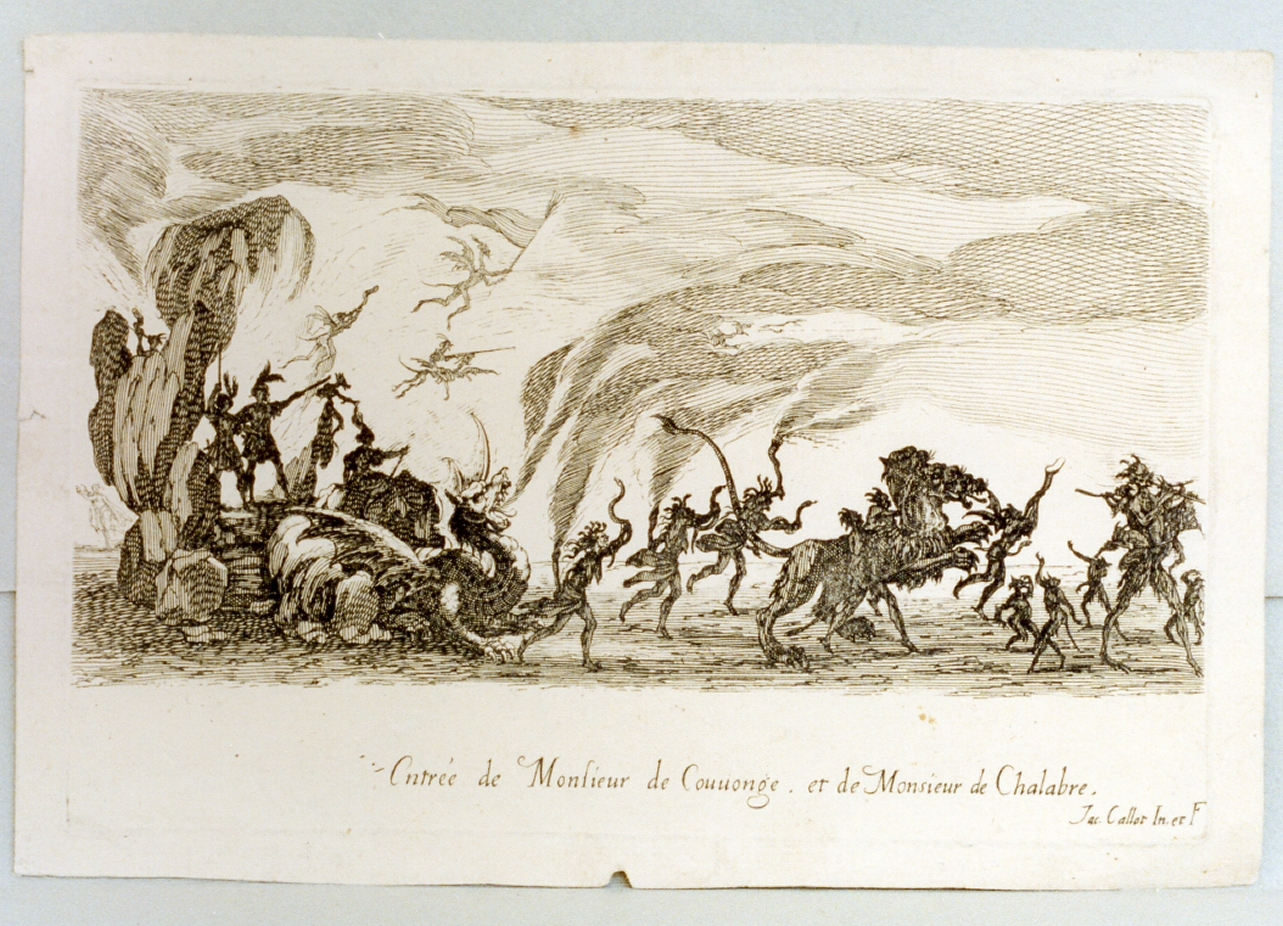 Entrée de Monsieur de Couuonge. et de Monsieur de Chalabre.
Jac. Callot In. et F